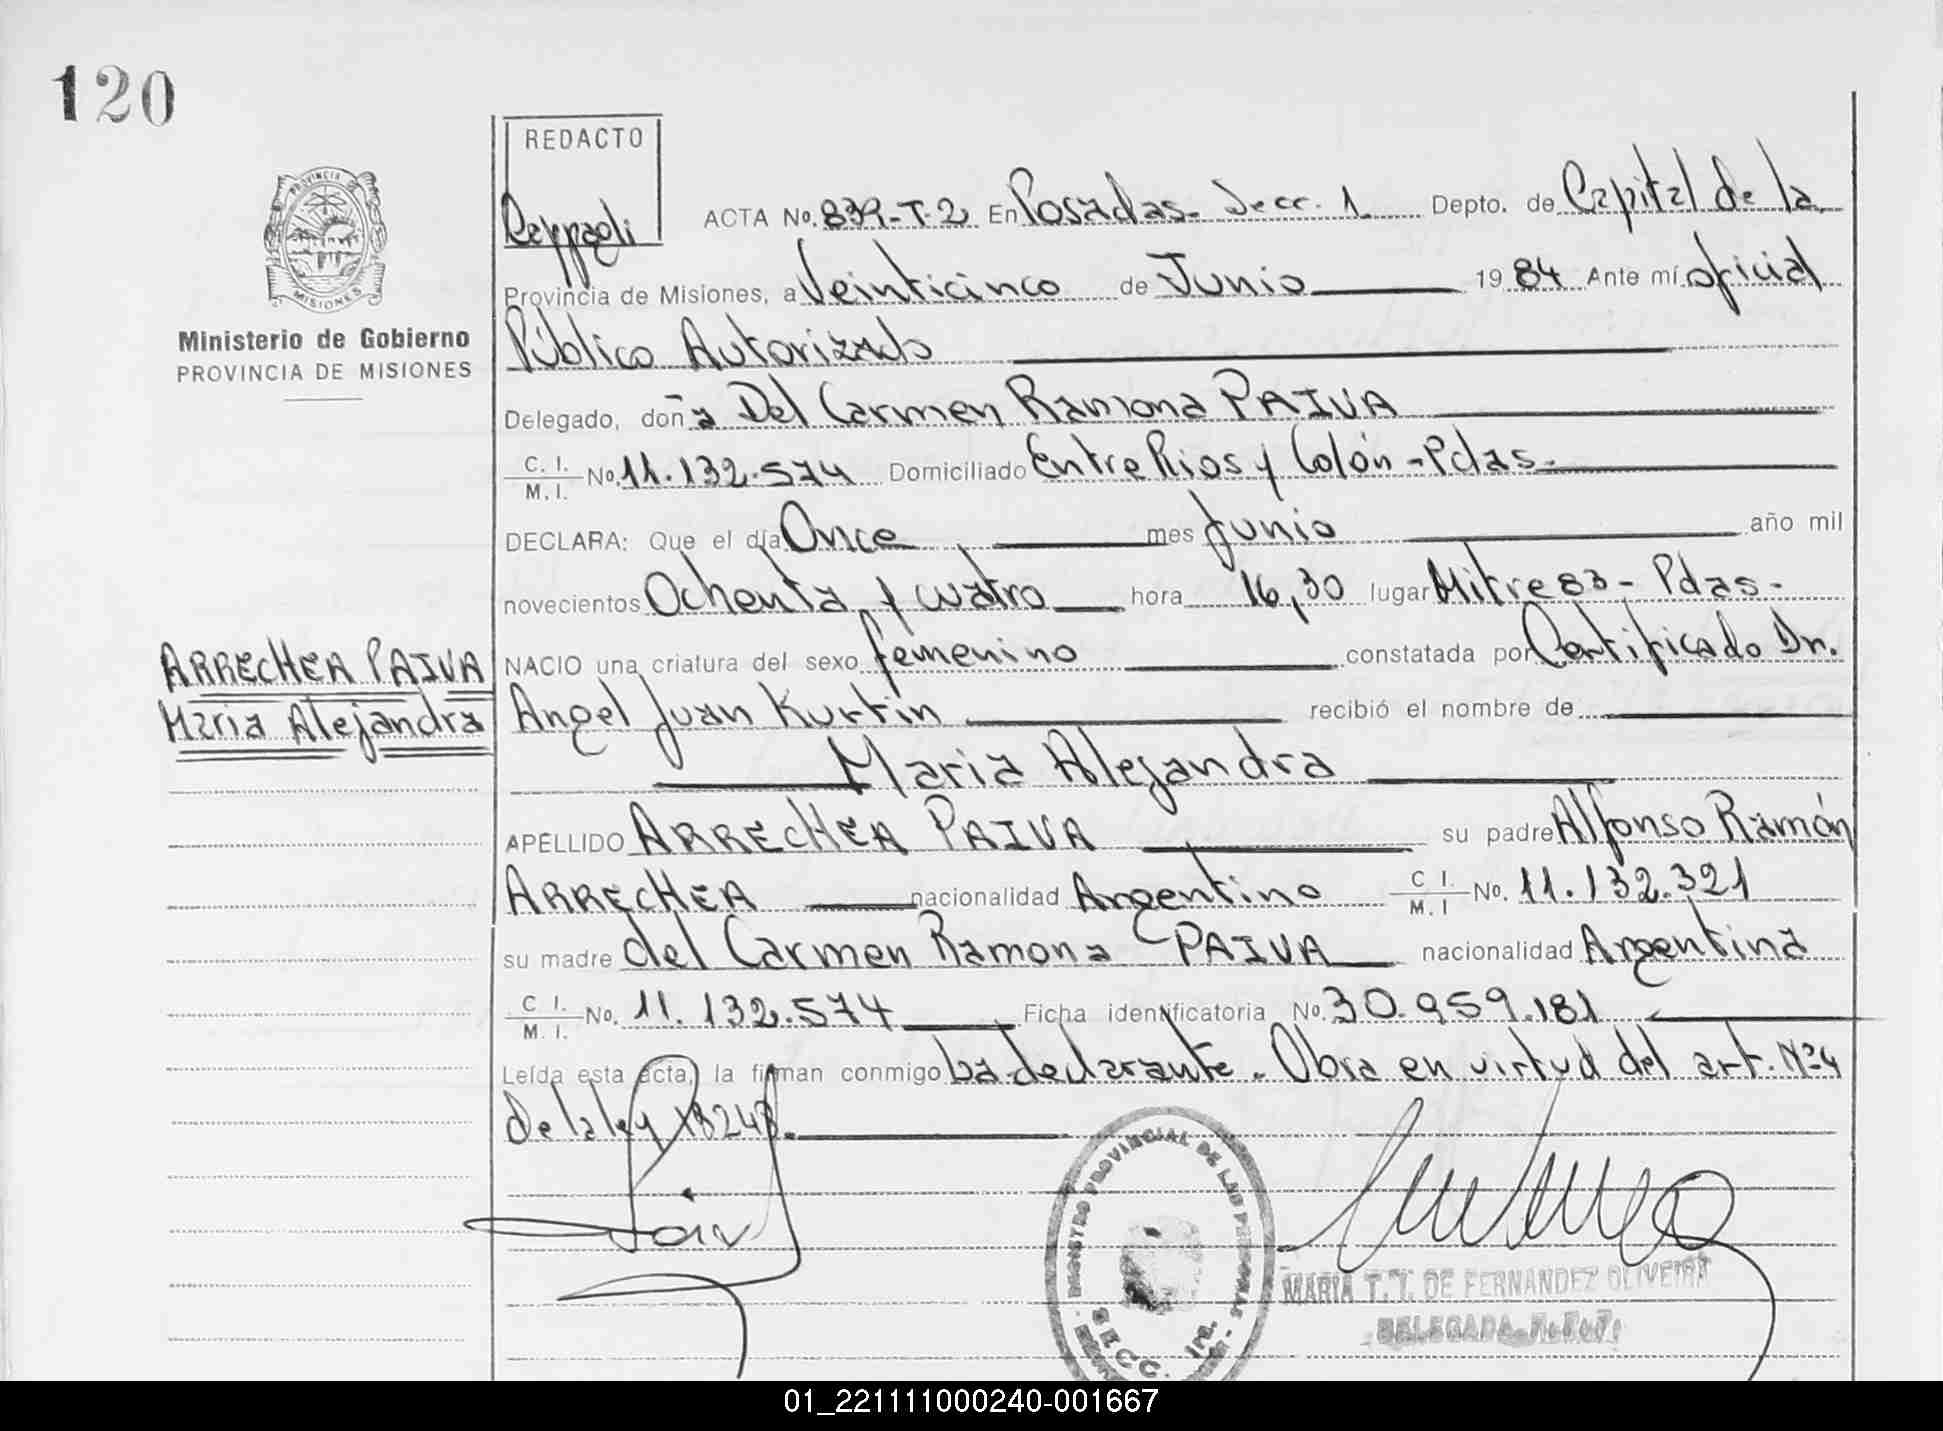 120
REDACTO
PROVINCIA DE
MISIONES
Ministerio de Gobierno
PROVINCIA DE MISIONES
ACTA No. 839-T-2 En Posadas- Secc. 1 Depto. de Capital de la
Provincia de Misiones, a Veinticinco de Junio 1984 Ante mí oficial
Público Autorizado
Delegado, doña Del Carmen Ramona PAIVA
C. I. M. I. No. 11.132.574 Domiciliado Entre Rios y Colón - Pdas.
DECLARA: Que el día Once mes Junio año mil
novecientos Ochenta y cuatro hora 16,30 lugar Mitre 83 - Pdas-
NACIO una criatura del sexo femenino constatada por Certificado Dr.
ARRECHEA PAIVA
Maria Alejandra
Angel Juan Kurtin recibió el nombre de
Maria Alejandra
APELLIDO ARRECHEA PAIVA su padre Alfonso Ramón
ARRECHEA nacionalidad Argentino C I. M. I No. 11.132.321
su madre del Carmen Ramona PAIVA nacionalidad Argentina
C I. M. I. No. 11.132.574 Ficha identificatoria No. 30.959.181
Leída esta acta, la firman conmigo La declarante. Obra en virtud del art. Nº 4
De la ley 18248.
REGISTRO PROVINCIAL DE LAS PERSONAS
SECC. 1ra.
MARIA T. T. DE FERNANDEZ OLIVEIRA
DELEGADA
01_221111000240-001667